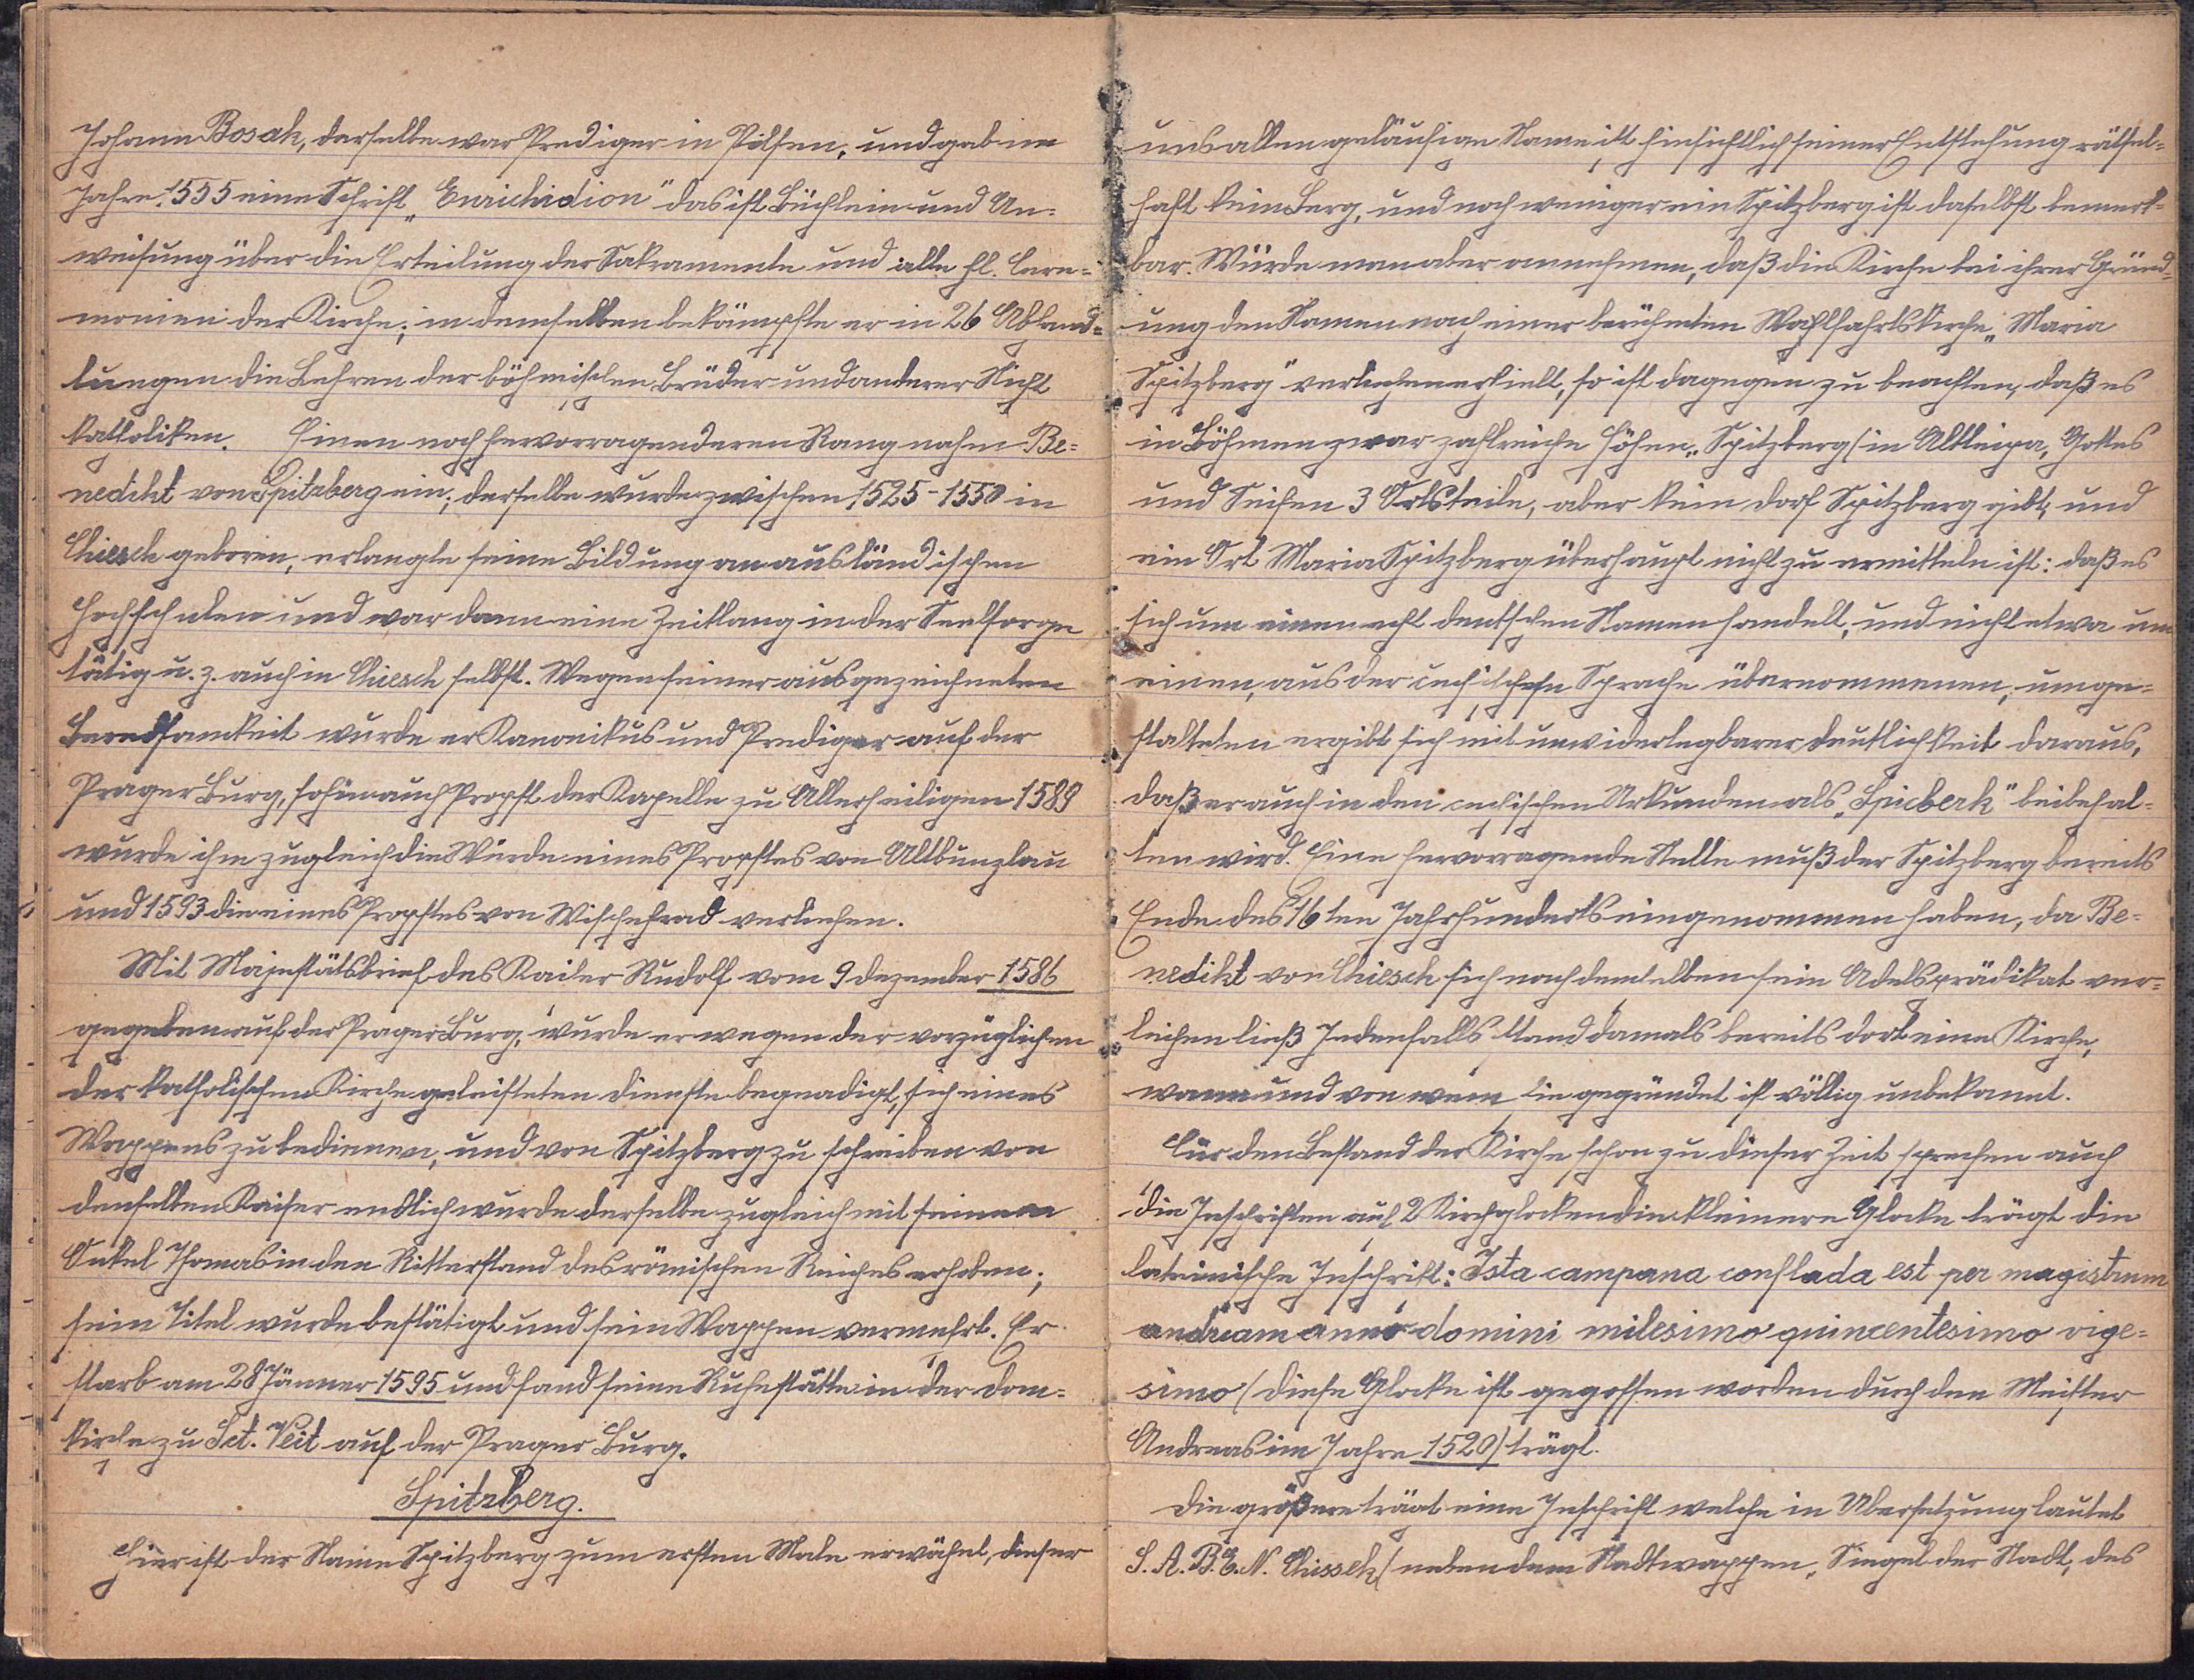 Johann Bosak, derselbe war Prediger in Pilsen, und gab im
Jahre 1555 eine Schrift „Enrichidion" das ist Büchlein und An-
weisung über die Erteilung der Sakramente und alle hl. Cere-
monien der Kirche; in demselben bekämpfte er in 26 Abhand-
lungen die Lehren der böhmischen Brüder und anderer Nicht
katholiken. Einen noch hervorragenderen Rang nahm Be-
nedikt von Spitzberg ein; derselbe wurde zwischen 1525-1550 in
Chiesch geboren, erlangte seine Bildung an ausländischen
Hochschulen und war dann eine Zeitlang in der Seelsorge
tätig u. z. auch in Chiesch selbst. Wegen seiner ausgezeichneten
Beredsamkeit wurde er Kanonikus und Prediger auf der
Prager Burg, sohin auch Propst der Kapelle zu Allerheiligen 1589
wurde ihm zugleich die Würde eines Propstes von Altbunzlau
und 1593 die eines Propstes von Wischehrad verliehen.
Mit Majestätsbrief des Kaiser Rudolf vom 9 Dezember 1586
gegeben auf der Prager Burg, wurde er wegen der vorzüglichen
der katholischen Kirche geleisteten Dienste begnadigt, sich eines
Wappens zu bedienen, und von Spitzberg zu schreiben von
denselben Kaiser endlich wurde derselbe zugleich mit seinem
Onkel Thomas in den Ritterstand des römischen Reiches erhoben;
sein Titel wurde bestätigt und sein Wappen vermehrt. Er
starb am 28 Jänner 1595 und fand seine Ruhestätte in der Dom-
kirche zu Sct. Veit auf der Prager Burg.
Spitzberg.
Hier ist der Name Spitzberg zum ersten Male erwähnt, dieser
uns allen geläufige Name ist hinsichtlich seiner Entstehung rätsel-
haft kein Berg, und noch weniger ein Spitzberg ist daselbst bemerk-
bar. Würde man aber annehmen, daß die Kirche bei ihrer Gründ-
ung den Namen nach einer berühmten Wahlfahrtskirche „Maria
Spitzberg" verliehen erhielt, so ist dagegen zu beachten, daß es
in Böhmen zwar zahlreiche Höhen „Spitzberg (in Altleipa, Gottes
und Seifen 3 Ortsteile, aber kein Dorf Spitzberg gibt, und
ein Ort Maria Spitzberg überhaupt nicht zu ermitteln ist: daß es
sich um einen echt deutschen Namen handelt, und nicht etwa um
einen, aus der cechischen Sprache übernommenen, umge-
stalteten ergibt sich mit unwiderlegbarer Deutlichkeit daraus,
daß er auch in den cechischen Urkunden als „Spicberk" beibehal-
ten wird. Eine hervorragende Stelle muß der Spitzberg bereits
Ende des 16ten Jahrhunderts eingenommen haben, da Be-
nedikt von Chiesch sich nach demselben sein Adelsprädikat ver-
leihen ließ Jedenfalls stand damals bereits dort eine Kirche,
wann und von wem sie gegründet ist völlig unbekannt.
Für den Bestand der Kirche schon zu dieser Zeit sprechen auch
die Inschriften auf 2 Kirchglocken die kleinere Glocke trägt die
lateinische Inschrift: Ista campana conflada est per magistrum
andream anno domini milesimo quincentesimo vige-
simo (diese Glocke ist gegossen worden durch den Meister
Andreas im Jahre 1520) trägt.
Die größere trägt eine Inschrift welche in Übersetzung lautet
S. A. B. E. N. Chissek (neben dem Stadtwappen, Siegel der Stadt, des